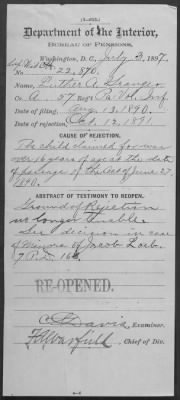 Department of the Interior,
BUREAU OF PENSIONS,
Washington, D. C., July 3, 1897.
No. 22,870.
Name, Luther A. Granger
Co. A. 57 Reg't Pa. Vol. Inf.
Date of filing, Aug. 13, 1890.
Date of rejection, Feb. 12, 1891.
CAUSE OF REJECTION.
The child claimed for was
over 16 years of age at the date
of passage of the act of June 27,
1890.
ABSTRACT OF TESTIMONY TO REOPEN.
Ground of Rejection
no longer tenable.
See decision in case
of Minors of Jacob Loeb.
7 P.D. 16
RE-OPENED.
Davis, Examiner.
Chief of Div.